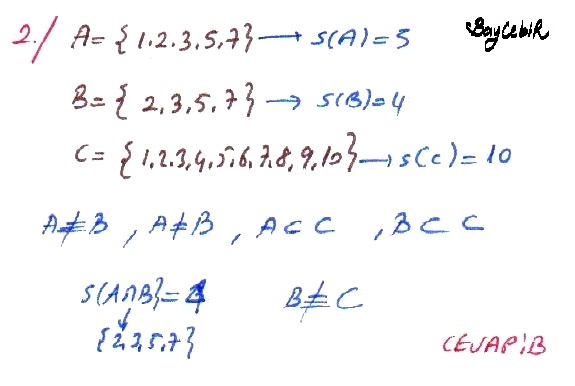 2./ A = {1,2,3,5,7} → s(A) = 5 BayCebiR
B = { 2,3,5,7} → s(B) = 4
C = {1,2,3,4,5,6,7,8,9,10} → s(C) = 10
A ≢ B , A ≠ B , A ⊂ C , B ⊂ C
s(A∩B) = 4 B ≢ C
{2,3,5,7}
CEVAP:B